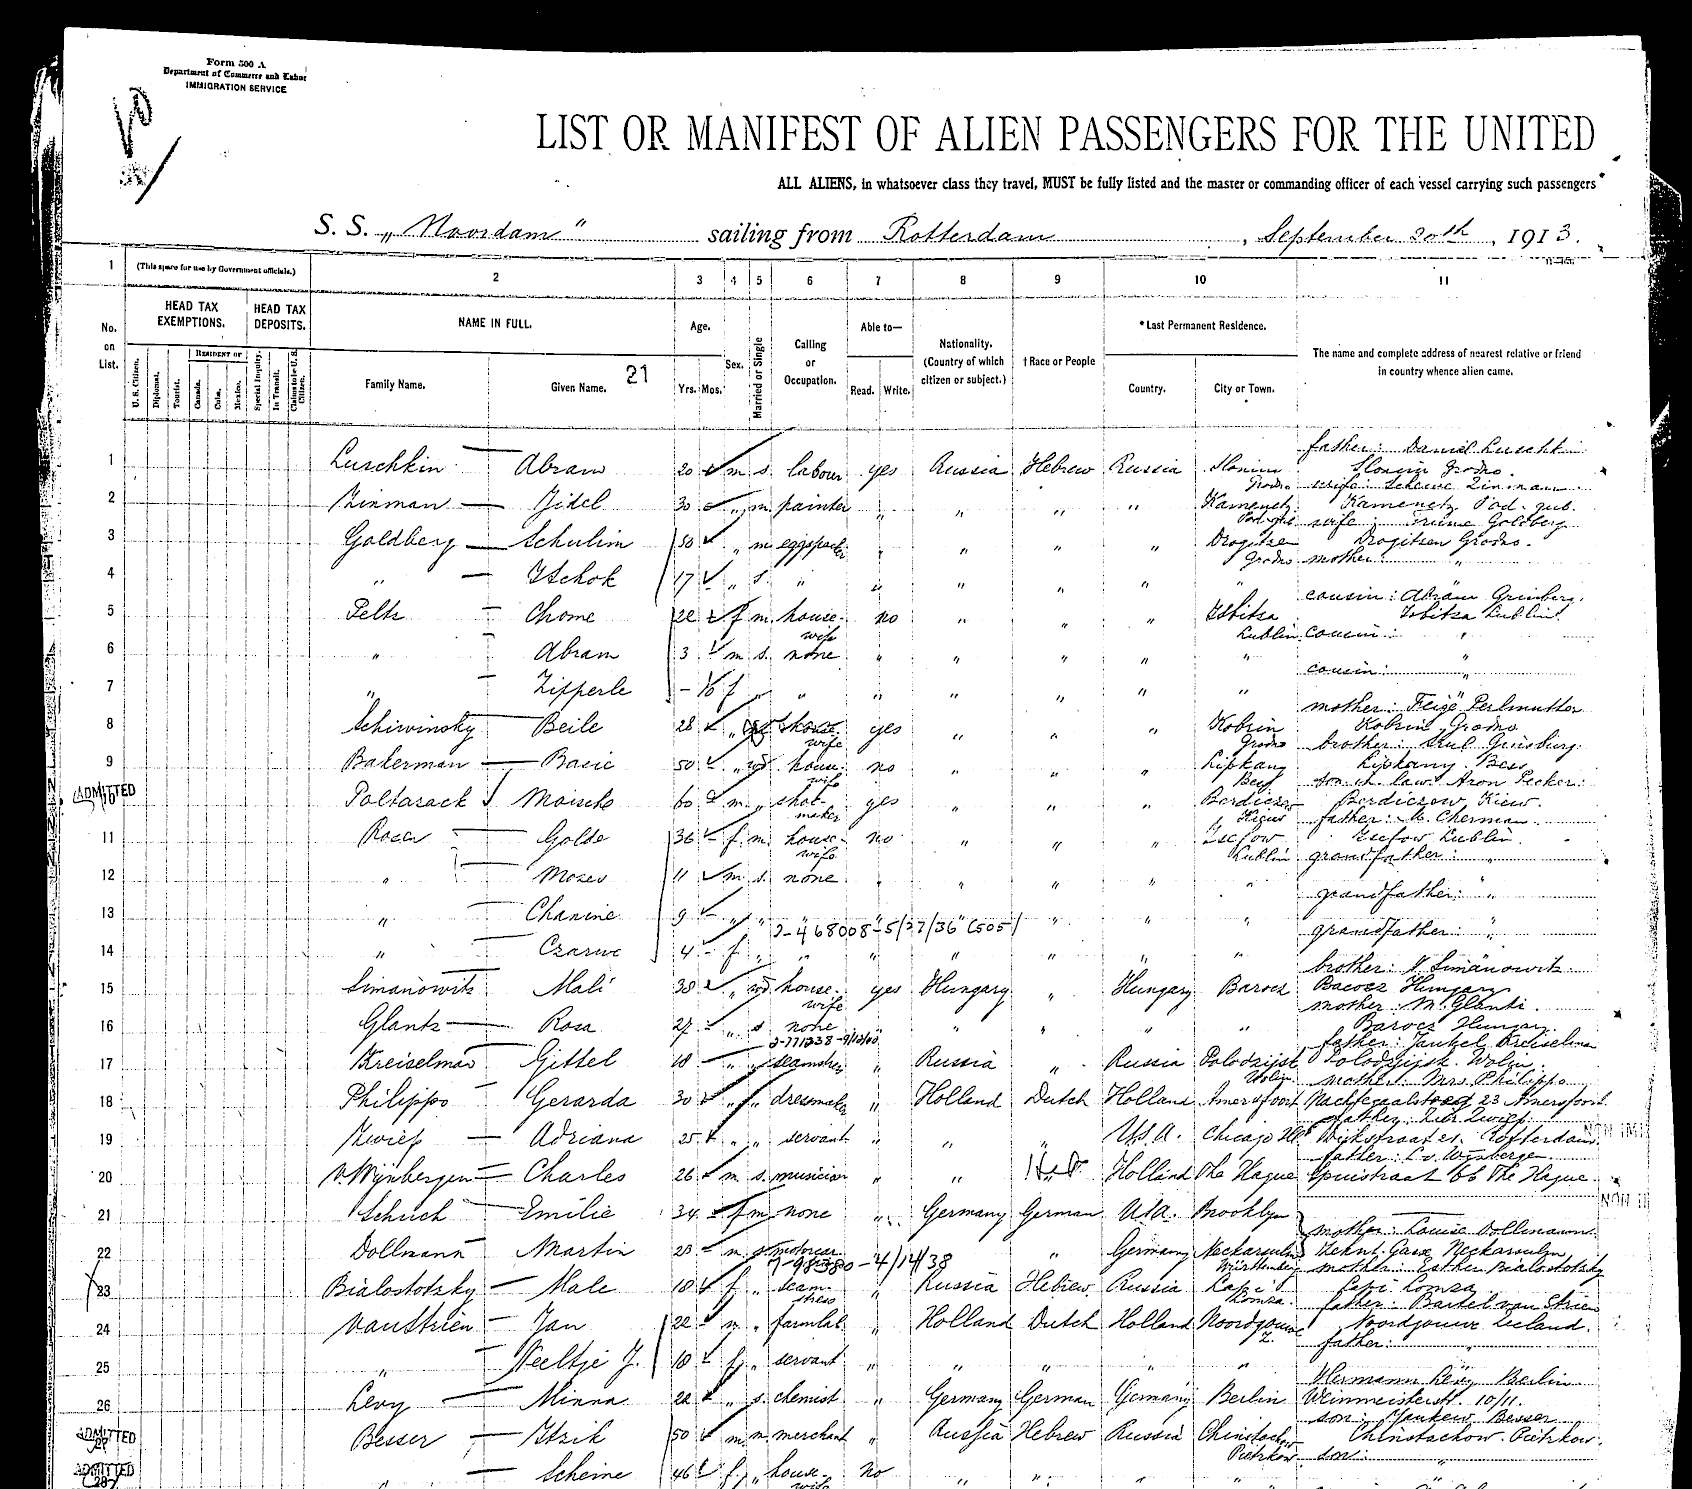 Form 500 A
Department of Commerce and Labor
IMMIGRATION SERVICE
LIST OR MANIFEST OF ALIEN PASSENGERS FOR THE UNITED
ALL ALIENS, in whatsoever class they travel, MUST be fully listed and the master or commanding officer of each vessel carrying such passengers
S. S. „ Noordam " sailing from Rotterdam , September 20th , 1913.
1 (This space for use by Government officials.) 2 3 4 5 6 7 8 9 10 11
No. on List. HEAD TAX EXEMPTIONS. HEAD TAX DEPOSITS. NAME IN FULL. Age. Sex. Married or Single Calling or Occupation. Able to— Nationality. (Country of which citizen or subject.) † Race or People *Last Permanent Residence. The name and complete address of nearest relative or friend in country whence alien came.
U. S. Citizen. Diplomat. Tourist. RESIDENT OF Canada. Cuba. Mexico. Special Inquiry. In Transit. Claims to be U. S. Citizen. Family Name. Given Name. 21 Yrs. Mos. Read. Write. Country. City or Town.
father: Daniel Luschkin
1 Luschkin Abram 20 m s. labour yes Russia Hebrew Russia Slonim Slonim Grodno.
Grodno wife: Scheine Zinman
2 Zinman Jidel 30 „ m painter „ „ „ „ Kamenetz Kamenetz Pod. gub.
wife: Goldberg
3 Goldberg Schulim 50 „ m eggpacker „ „ „ „ Drogitsen Drogitsen Grodno.
Grodno mother: „
4 „ Itschok 17 „ s. „ „ „ „ „ „
cousin: Abram Grinberg.
5 Pelts Chome 22 f m house- no „ „ „ Isbitsa Isbitsa Lublin
wife Lublin cousin: „
6 „ Abram 3 m s. none „ „ „ „ „
cousin: „
7 „ Zipperle – f „ „ „ „ „ „ „
mother: Feige Perlmutter
8 Schirvinsky Beile 28 „ house- yes „ „ „ Kobrin Kobrin Grodno
wife Grodno brother: Ginsburg
9 Bakerman Basie 50 „ wd house- no „ „ „ Lipkany Lipkany Bess
wife Bess son in law: Aron Pecker:
ADMITTED
10 Poltarack Moische 60 m „ shoe- yes „ „ „ Berdiczew Berdiczew Kiew.
maker Kiew father: M. Cherman
11 Rosen Golde 36 f m house- no „ „ „ Lublin.
wife Lublin grandfather: „
12 „ Moses 11 m s. none „ „ „ „ „
grandfather: „
13 „ Chanine 9 „ „ „ „ „ „ „
2-468008-5/27/36 (505)
grandfather: „
14 „ Czarne 4 f „ „ „ „ „ „ „
brother: Simanowitz
15 Simanowitz Mali 38 „ wd house- yes Hungary „ Hungary Barocz Barocz Hungary
wife mother: M. Glantz
16 Glantz Rosa 27 „ s none „ „ „ „ „ Barocz Hungar.
father: Jankel Kreiselman
17 Kreiselman Gittel 18 „ „ seamstress „ Russia „ Russia Wolin.
Wolin mother: Mrs Philippo
18 Philippo Gerarda 30 „ „ dressmaker „ Holland Dutch Holland Amersfoort 23 Amersfoort
19 Adriana 25 „ „ servant „ „ „ U.S.A. Chicago Ill Rotterdam
father: C. v. Wijnbergen
20 v. Wijnbergen Charles 26 m s. musician „ „ Holland The Hague Spuistraat 66 The Hague
21 Schuch Emilie 34 f m none „ Germany German U.S.A. Brooklyn
mother: Louise Dollmann
22 Dollmann Martin 28 m s motorcar „ „ „ Germany Neckarsulm Gasse Neckarsulm
7-98380-4/14/38 Württemberg mother: Esther Bialostotsky
23 Bialostotsky Male 18 f „ seam- „ Russia Hebrew Russia Lomza
stress Lomza. father: Bartel van Strien
24 van Strien Jan 22 m „ farmlab „ Holland Dutch Holland Noordgouwe Noordgouwe Zeeland.
Z. father: „
25 „ Neeltje J. 18 f „ servant „ „ „ „ „
Hermann Levy Berlin
26 Levy Minna 22 „ s chemist „ Germany German Germany Berlin Weinmeisterst. 10/11.
son: Jankew Besser
ADMITTED
27 Besser Itzik 50 m m merchant „ Russia Hebrew Russia Chinstochow Chinstochow. Piotrkow.
Piotrkow son: „
ADMITTED
28 „ Scheine 46 f „ house- no „ „ „ „
wife